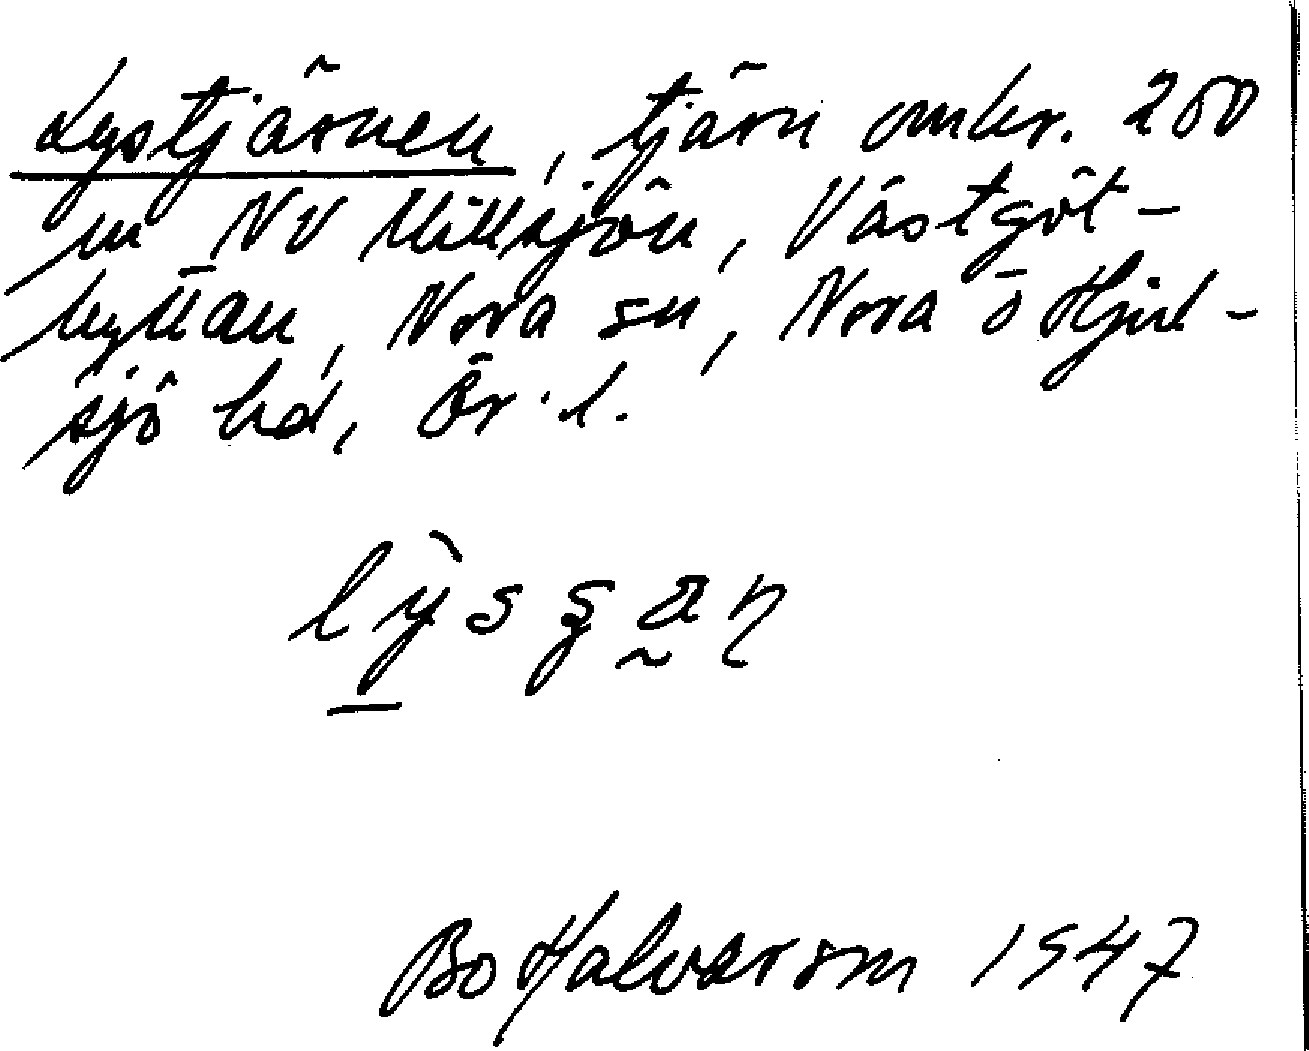 Lystjärnen, tjärn omkr. 200
m NV Lillsjön, Västgöt-
hyttan, Nora sn, Nora o Hjul-
sjö hd, Ör. l.
Bo Halvarson 1947